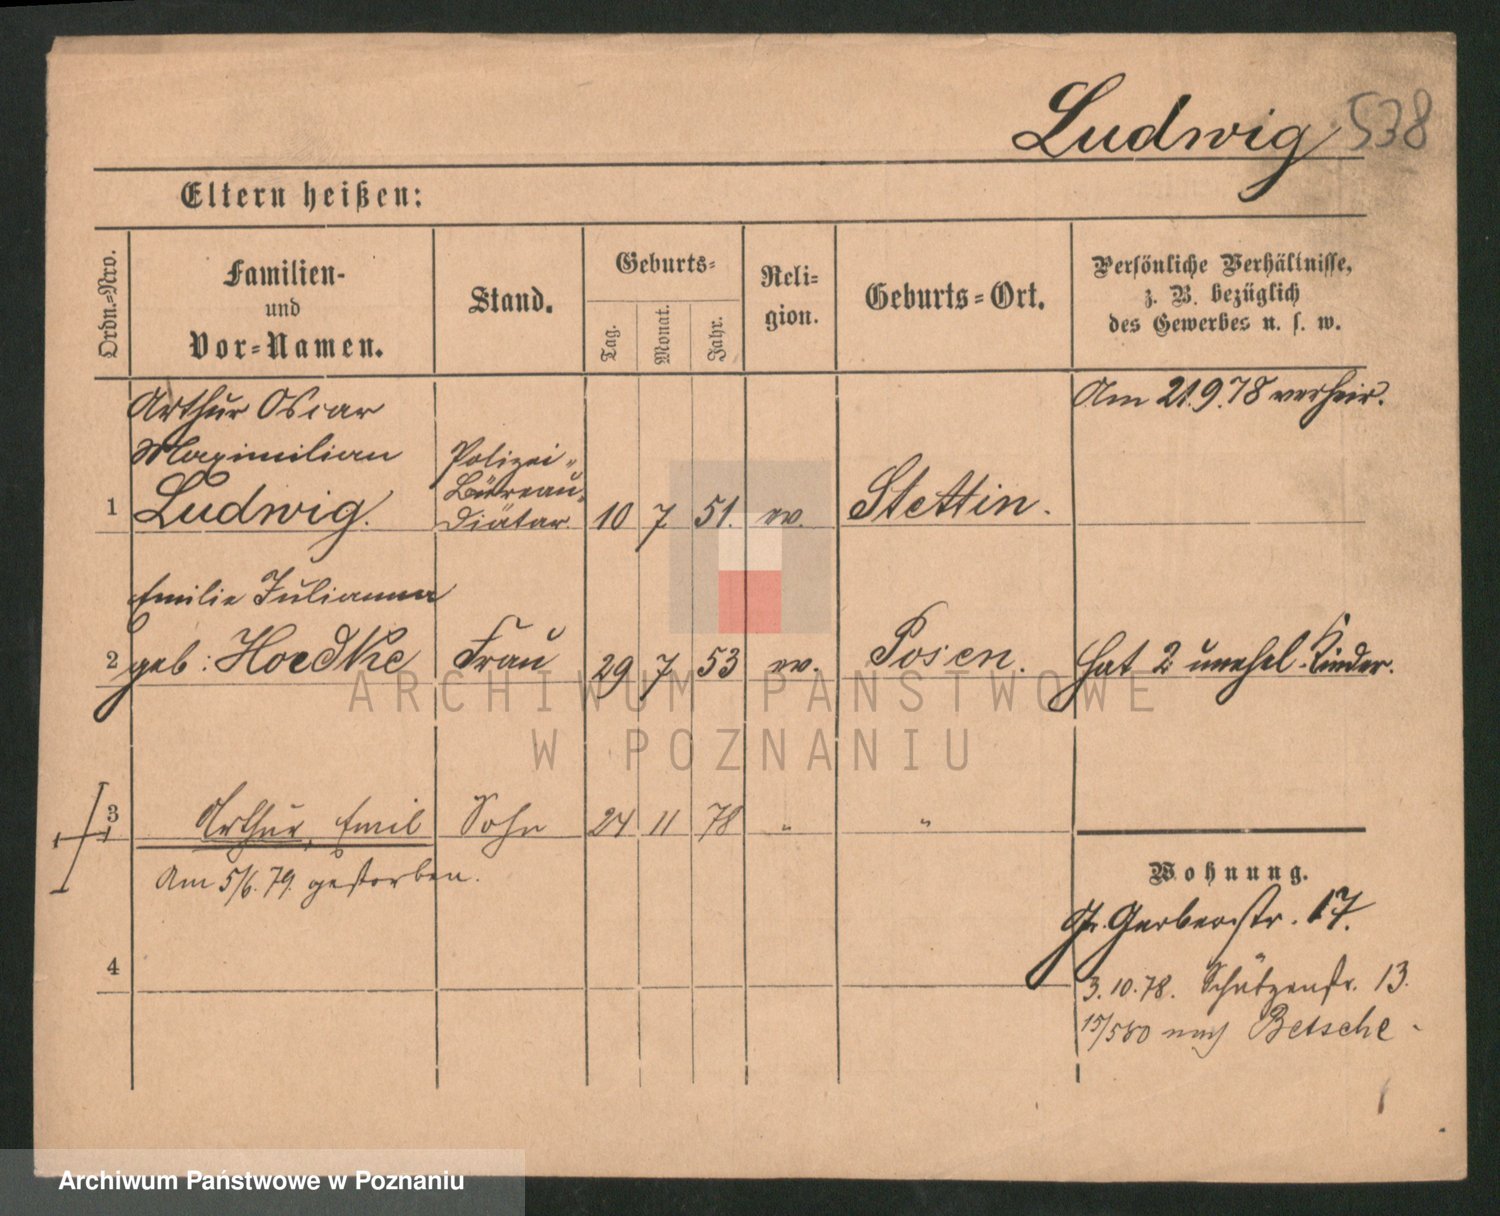 Ludwig 538
Eltern heißen:
Ordn.=Nro.
Familien-
und
Vor=Namen.
Stand.
Geburts=
Tag.
Monat.
Jahr.
Reli=
gion.
Geburts=Ort.
Persönliche Verhältnisse,
z. B. bezüglich
des Gewerbes u. s. w.
Arthur Oscar
Maximilian
1 Ludwig.
Polizei=
Büreau=
Diätar
10 7 51. ev. Stettin.
Am 21.9.78 verheir.
Emilie Julianna
2 geb: Hoedtke Frau 29 7 53 ev. Posen. Hat 2 unehel. Kinder.
3 Arthur, Emil Sohn 24 11 78 " "
Am 5/6. 79. gestorben.
4
Wohnung.
Gr. Gerberstr. 17.
3.10.78. Schützenstr. 13.
15/5 80 nach Betsche.
ARCHIWUM PAŃSTWOWE
W POZNANIU
Archiwum Państwowe w Poznaniu